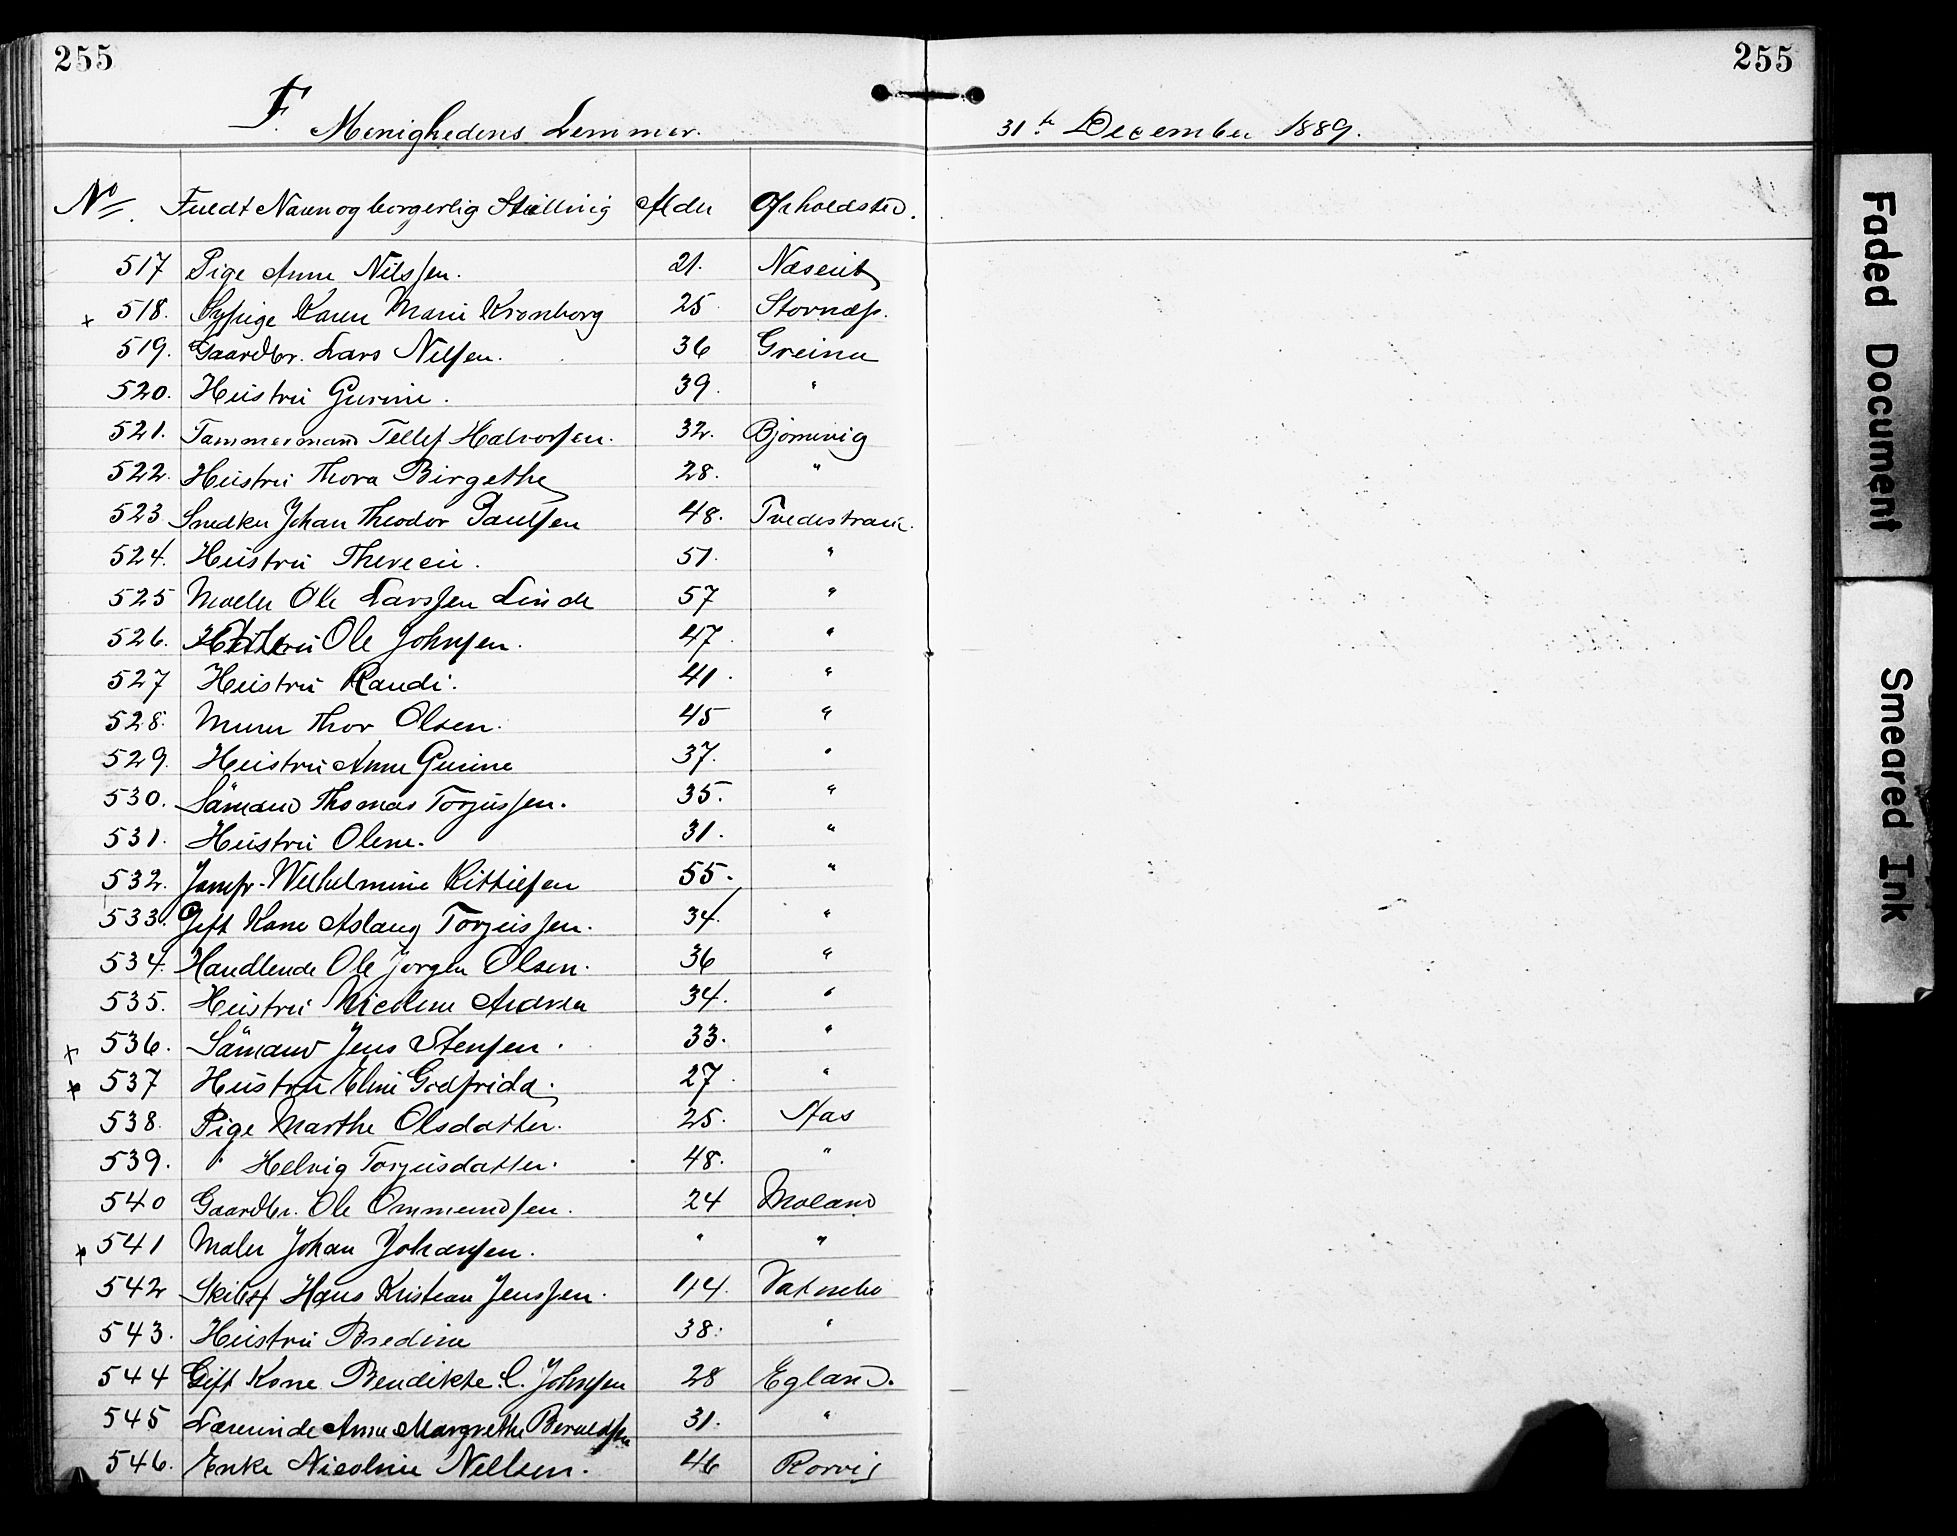 255 255
F. Menighedens Lemmer. 31te December 1889.
No Fuldt Navn og borgerlig Stilling Alder Opholdsted.
517 Pige Anne Nilssen. 21.
+ 518. Sypige Karen Marie Kronborg 25 Stornæs.
519. Gaardbr. Lars Nilsen. 36 Greina
520. Hustru Gurine. 39. "
521. Tømmermand Tellef Halvorsen. 32. Bjørnevig
522. Hustru Thora Birgethe 28. "
523 Snedker Johan Theodor Paulsen 48. Tvedestrand.
524. Hustru Therecie. 51. "
525 Maler Ole Larssen Linde 57 "
526. Ole Johnsen. 47. "
527 Hustru Randi. 41. "
528. Murer Thor Olsen. 45 "
529. Hustru Anne Gurine 37. "
530. Sømand Thomas Torjussen. 35. "
531. Hustru Olene. 31. "
532. Jomfr. Wilhelmine Kittilsen 55. "
533. Gift Kone Aslaug Torjussen. 34. "
534. Handlende Ole Jørgen Olsen. 36 "
535. Hustru Nicoline Andrea 34. "
+ 536. Sømand Jens Stensen. 33. "
+ 537 Hustru Eline Godfrida. 27. "
538. Pige Marthe Olsdatter. 25. Aas
539. " Helvig Torjusdatter. 48. "
540 Gaardbr. Ole Ommundsen. 24 Moland
+ 541 Maler Johan Johansen. " "
542 Hans Kristian Jenssen. 44.
543. Hustru Bredine 38. "
544 Gift Kone Bendikte C. Johnsen 28 Egland.
545 Lærerinde Anne Margrethe 31. "
546. Enke Nicoline Nellsen. 46 Rørvig
Faded Document
Smeared Ink